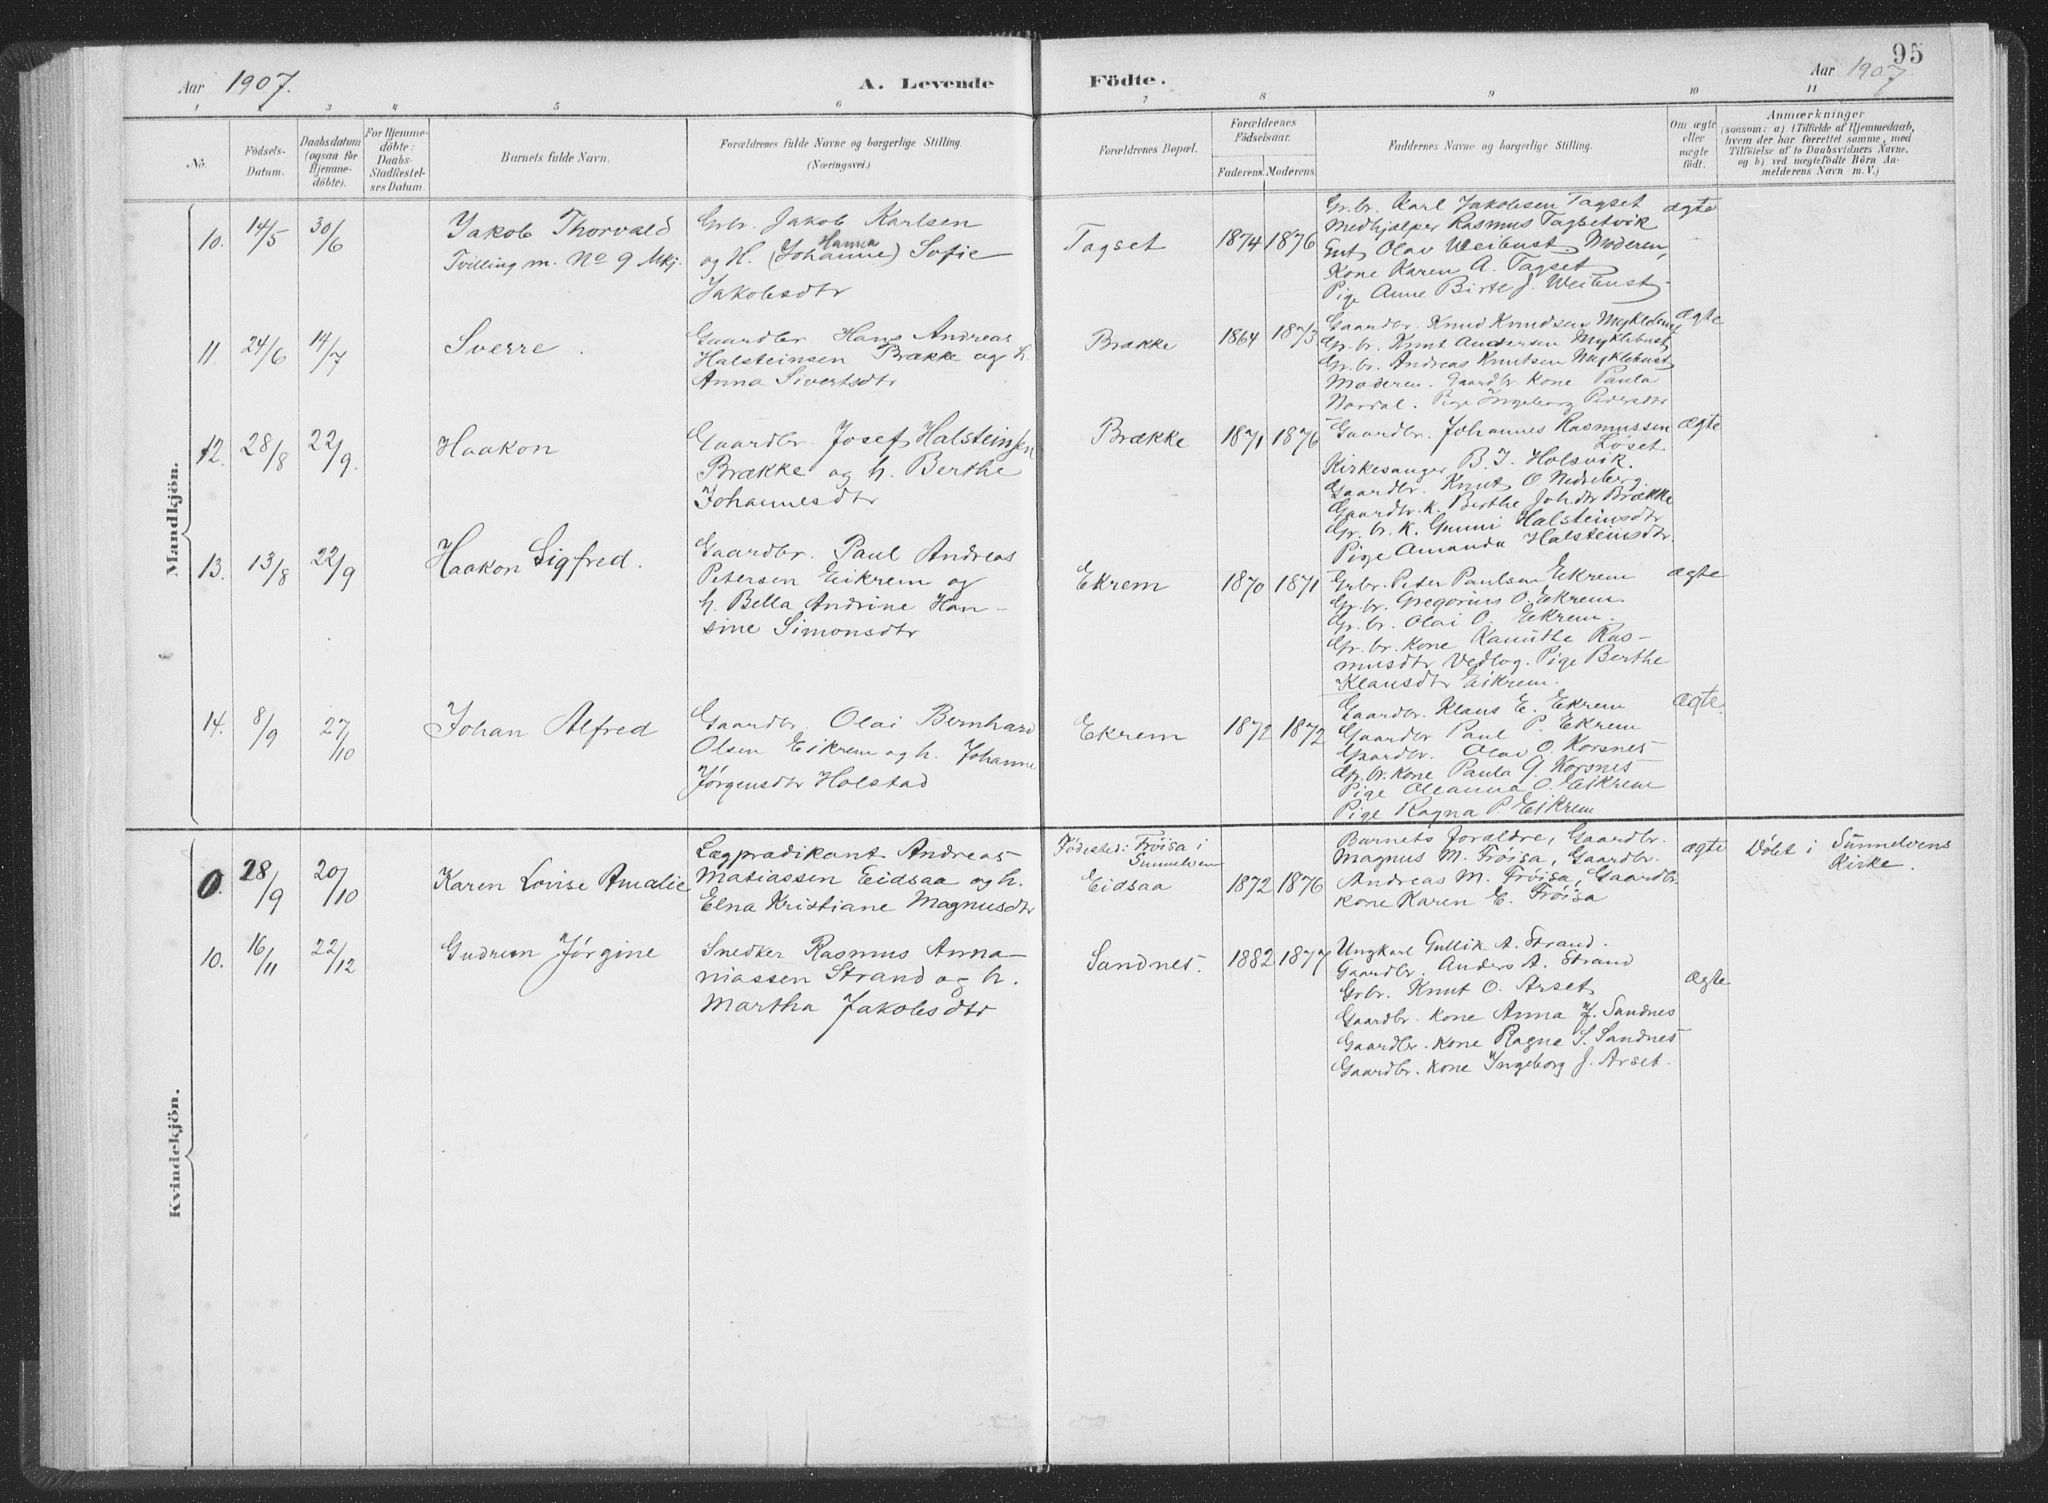 95
Aar 1907. A. Levende Födte. Aar 1907.
1 2 3 4 5 6 7 8 9 10 11
No.
Födsels-
Datum.
Daabsdatum
(ogsaa for
Hjemme-
döbte).
For Hjemme-
döbte:
Daabs-
Stadfestel-
ses Datum
Barnets fulde Navn.
Forældrenes fulde Navne og borgerlige Stilling.
(Næringsvei.)
Forældrenes Bopæl.
Forældrenes
Födselsaar.
Faderens. Moderens.
Faddernes Navne og borgerlige Stilling.
Om ægte
eller
uægte
födt.
Anmærkninger
(saasom: a) i Tilfælde af Hjemmedaab,
hvem der har forrettet samme, med
Tilföielse af to Daabsvidners Navne,
og b) ved uægtefödte Börn An-
melderens Navn m. V.)
Mandkjön.
10. 14/5 30/6
Jakob Thorvald
Tvilling m. No 9 Mkj.
Grbr. Jakob Karlsen
og H. (Johanne) Hanna Sofie
Jakobsdtr
Tagset 1874 1876
Gr.br. Karl Jakobsen Tagset
Medhjælper Rasmus Tagsetvik
Gut Olav Weibust. Moderen,
Kone Karen A. Tagset
Pige Anne Birte J. Weibust
ægte
11. 24/6 14/7
Sverre.
Gaardbr. Hans Andreas
Halsteinsen Brække og h.
Anna Sivertsdtr
Brække 1864 1873
Gaardbr. Knud Knudsen Myklebust
Gr.br. Knut Andersen Myklebust
Gr.br. Andreas Knutsen Myklebust
Moderen. Gaardbr. Kone Paula
Nordal. Pige Ingeborg Pedersdtr
ægte
12. 28/8 22/9.
Haakon
Gaardbr. Josef Halsteinsen
Brække og h. Berthe
Johannesdtr
Brække 1871 1876
Gaardbr. Johannes Rasmussen
Løset
Kirkesanger B. J. Holsvik.
Gaardbr. Knut O Nedreberg.
Gaardbr. K. Berthe Joh.dtr Brække
Gr. br. K. Gunni Halsteinsdtr
Pige Amanda Halsteinsdtr.
ægte
13. 13/8 22/9
Haakon Sigfred.
Gaardbr. Paul Andreas
Petersen Eikrem og
h. Bella Andrine Han-
sine Simonsdtr
Ekrem 1870 1871
Grbr. Peter Paulsen Ekrem
Gr.br. Gregorius O. Ekrem.
Gr. br. Olai O. Ekrem.
Gr. br. Kone Ras-
musdtr Vedlog. Pige Berthe
Klausdtr Eikrem.
ægte
14. 8/9 27/10
Johan Alfred
Gaardbr. Olai Bernhard
Olsen Eikrem og h. Johanne
Jørgensdtr Holstad
Ekrem 1872 1872
Gaardbr. Klaus E. Ekrem
Gaardbr Paul P. Ekrem
Gaardbr. Olav O. Korsnes
Gr. br. Kone Paula G. Korsnes
Pige Oleanna O. Eikrem
Pige Ragna P. Eikrem
ægte.
Kvindekjön.
0. 28/9 20/10
Karen Lovise Amalie
Lægprædikant Andreas
Matiassen Eidsaa og h.
Elna Kristiane Magnusdtr
Fødested: Frøisa i
Sunnelven
Eidsaa 1872 1876
Barnets forældre, Gaardbr.
Magnus M. Frøisa, Gaardbr.
Andreas M. Frøisa, Gaardbr.
Kone Karen E. Frøisa
ægte
Døbt i Sunnelvens
Kirke.
10. 16/11 22/12
Gudrun Jørgine
Snedker Rasmus Anna-
niassen Strand og h.
Martha Jakobsdtr
Sandnes. 1882 1877
Ungkarl Gullik A. Strand.
Gaardbr. Anders A. Strand
Grbr. Knut O. Arset
Gaardbr. Kone Anna J. Sandnes
Gaardbr. Kone Ragna S. Sandnes
Gaardbr. Kone Ingeborg J. Arset.
ægte